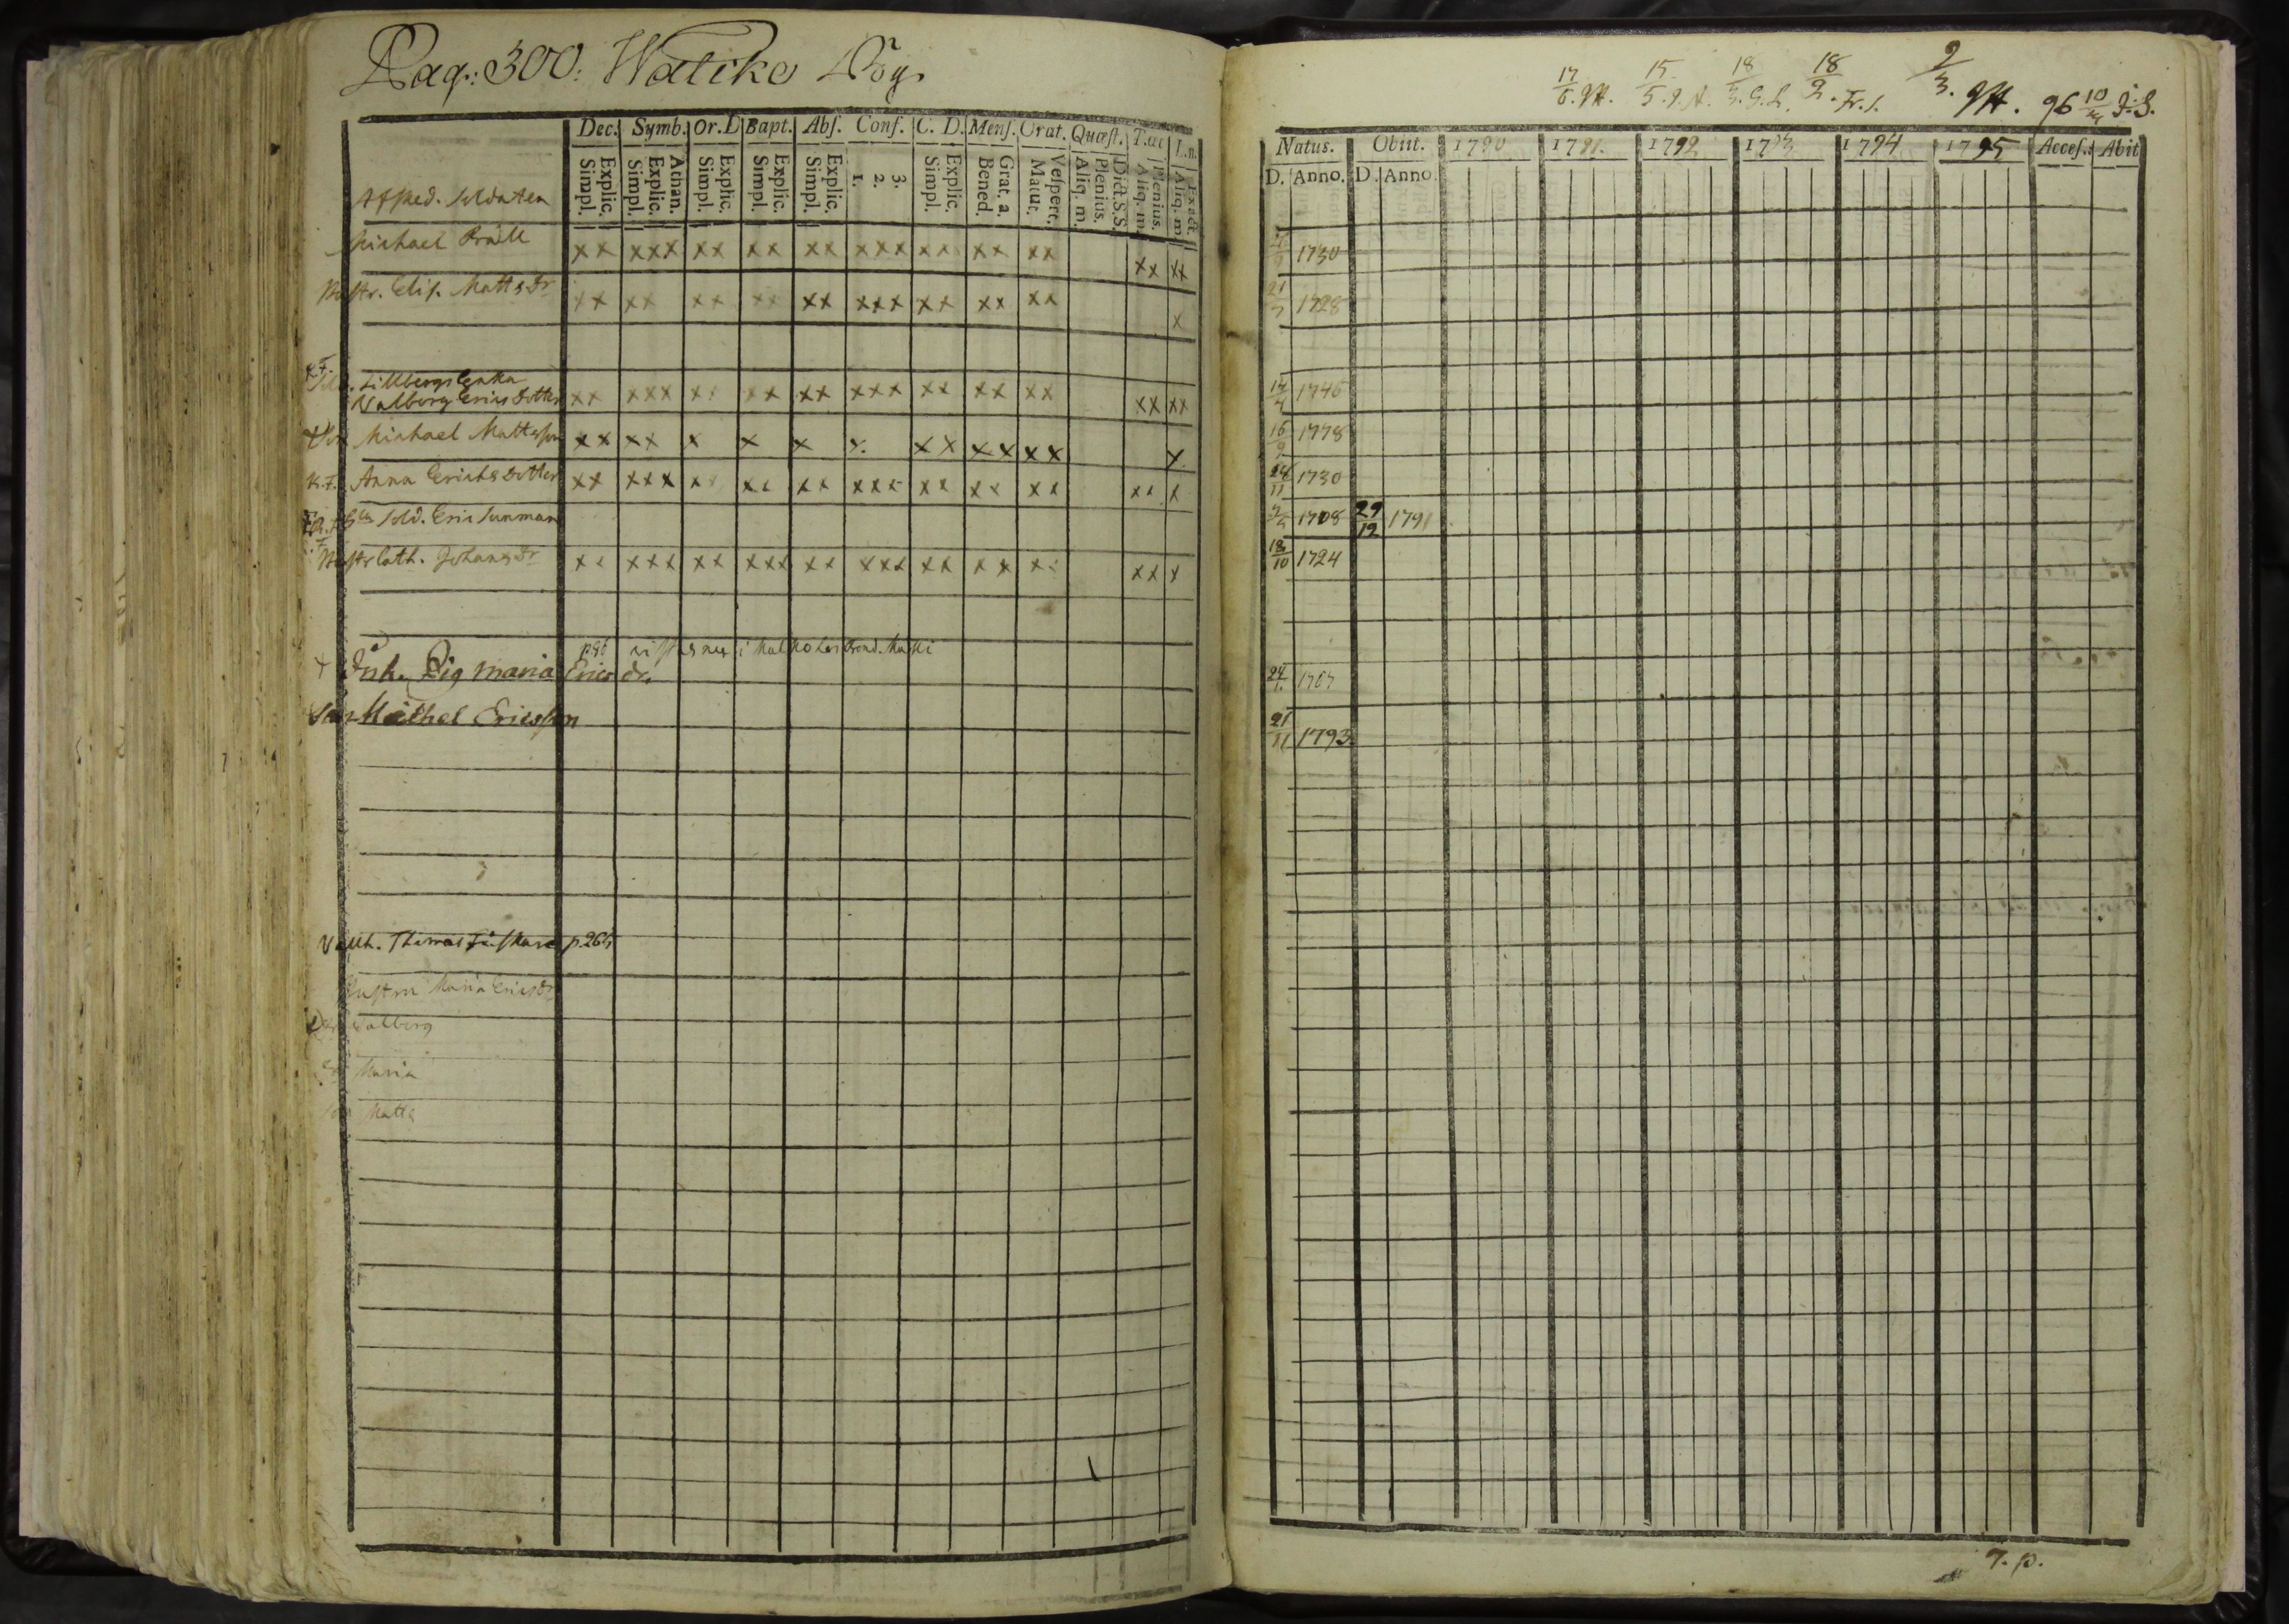 Pag: 300: Watiko
17/6. 15/5. 18/3. G. L. 18/2. Fr. S. 2/3. 96 10/3 J. S.
Dec. Symb. Or. D Bapt. Abs. Conf. C. D. Mens. Orat. Quæst. T.æc L.n.
Explic. Simpl. Athan. Explic. Simpl. Explic. Simpl. Explic. Simpl. Explic. Simpl. 3. 2. 1. Explic. Simpl. Grat. a. Bened. Vespert. Matut. Dict.S.S. Plenius. Aliq. m. Plenius. Aliq. m. Exact. Aliq. m.
Natus. Obiit. 1790 1791. 1792 1793 1794 1795 Acces. Abiit
D. Anno. D. Anno.
Afsked. Soldaten
Michael Bräll xx xxx xx xx xx xxx xx xx xx xx xx 1730
Hustr. Elis. Matts Dr xx xx xx xx xx xxx xx xx xx x 21/3 1728
K.F.
Sold. Lillbergs Enka
Valborg Erics Dotter xx xxx xx xx xx xxx xx xx xx xx xx 14/4 1746
Son Michael Mattsson xx xx x x x x. xx xx xx x 16/9 1778
K.F. Anna Erichs Dotter xx xxx xx xx xx xxx xx xx xx xx x 24/11 1730
Sold. Eric Sunman 1708 29/12 1791
Hustr Cath. Johans Dr xx xxx xx xxx xx xxx xx xx xx xx x 18/10 1724
p. 96 i
+ Pig Maria Erics dr. 24/1. 1767
Son Michel Ericsson 21/11 1793.
Thomas p. 264
Hustru Maria Erics Dr
Dr Walborg
Dr Maria
Son Matts
7. p.